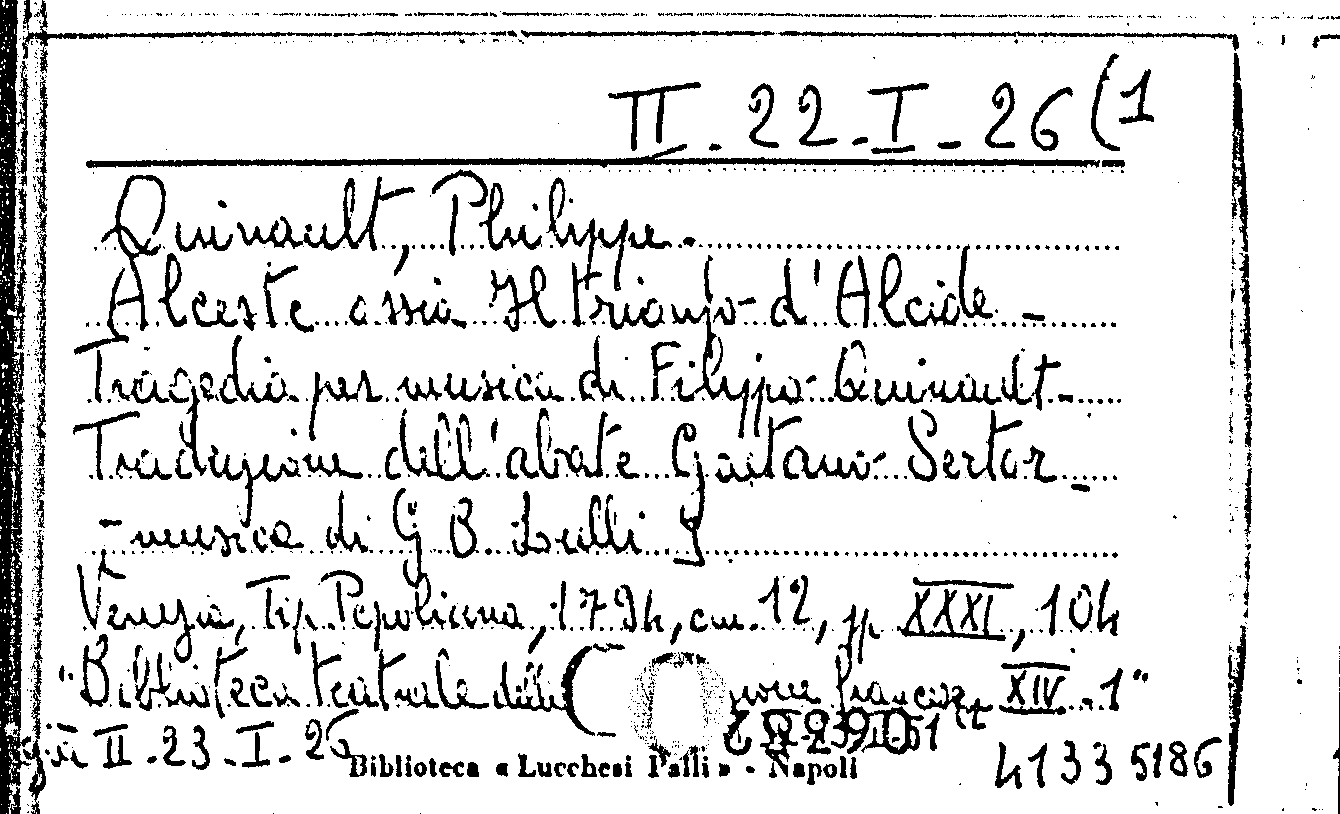 II. 22 - I - 26 (1
Quinault, Philippe.
Alceste ossia Il trionfo d'Alcide -
Tragedia per musica di Filippo Quinault -
Traduzione dell'abate Gaetano Sertor -
- musica di G B. Lulli
Venezia, Tip. Pepoliana, 1794, cm. 12, pp. XXXI, 104
"Biblioteca teatrale della francese, XIV - 1"
già II - 23 - I - 26
Biblioteca « Lucchesi Palli » - Napoli
4133 5186